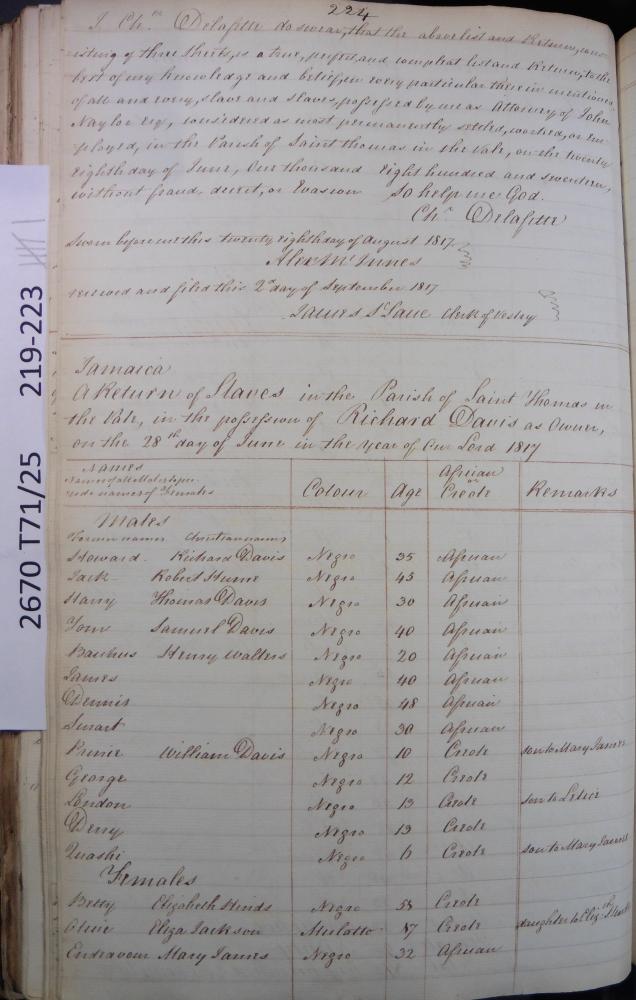 224
I Chs. Delafitte do swear, that the above list and Return, cons-
isting of three sheets, is a true, perfect and compleat list and Return, to the
best of my knowledge and belief, in every particular therein mentioned
of all and every, slave and slaves, possessed by me as Attorney of John
Naylor Esq, considered as most permanently settled, worked, or Em-
ployed, in the Parish of Saint Thomas in the Vale, on the twenty
eighth day of June, One thousand eight hundred and seventeen,
without fraud, deceit, or Evasion So help me God.
Chs. Delafitte
Sworn before me this twenty eighth day of August 1817
Alexr. McInnes
received and filed this 2d day of September 1817
James S Lane Clerk of Vestry
Jamaica
A Return of Slaves in the Parish of Saint Thomas in
the Vale, in the possession of Richard Davis as Owner,
on the 28th day of June in the Year of Our Lord 1817
Names
Names of all Males to precede names of Females Colour Age African or Creole Remarks
Males
Former names Christian names
Steward Richard Davis Negro 35 African
Jack Robert Hume Negro 45 African
Harry Thomas Davis Negro 30 African
Tom Samuel Davis Negro 40 African
Bacchus Henry Walters Negro 20 African
James Negro 40 African
Dennis Negro 48 African
Smart Negro 30 African
Prince William Davis Negro 10 Creole son to Mary James
George Negro 12 Creole
London Negro 13 Creole son to Leticie
Derry Negro 13 Creole
Quashi Negro 6 Creole son to Mary James
Females
Betty Elizabeth Hinds Negro 53 Creole
Olive Eliza Jackson Mulatto 17 Creole daughter to Elizth
Endeavour Mary James Negro 32 African
2670 T71/25 219-223